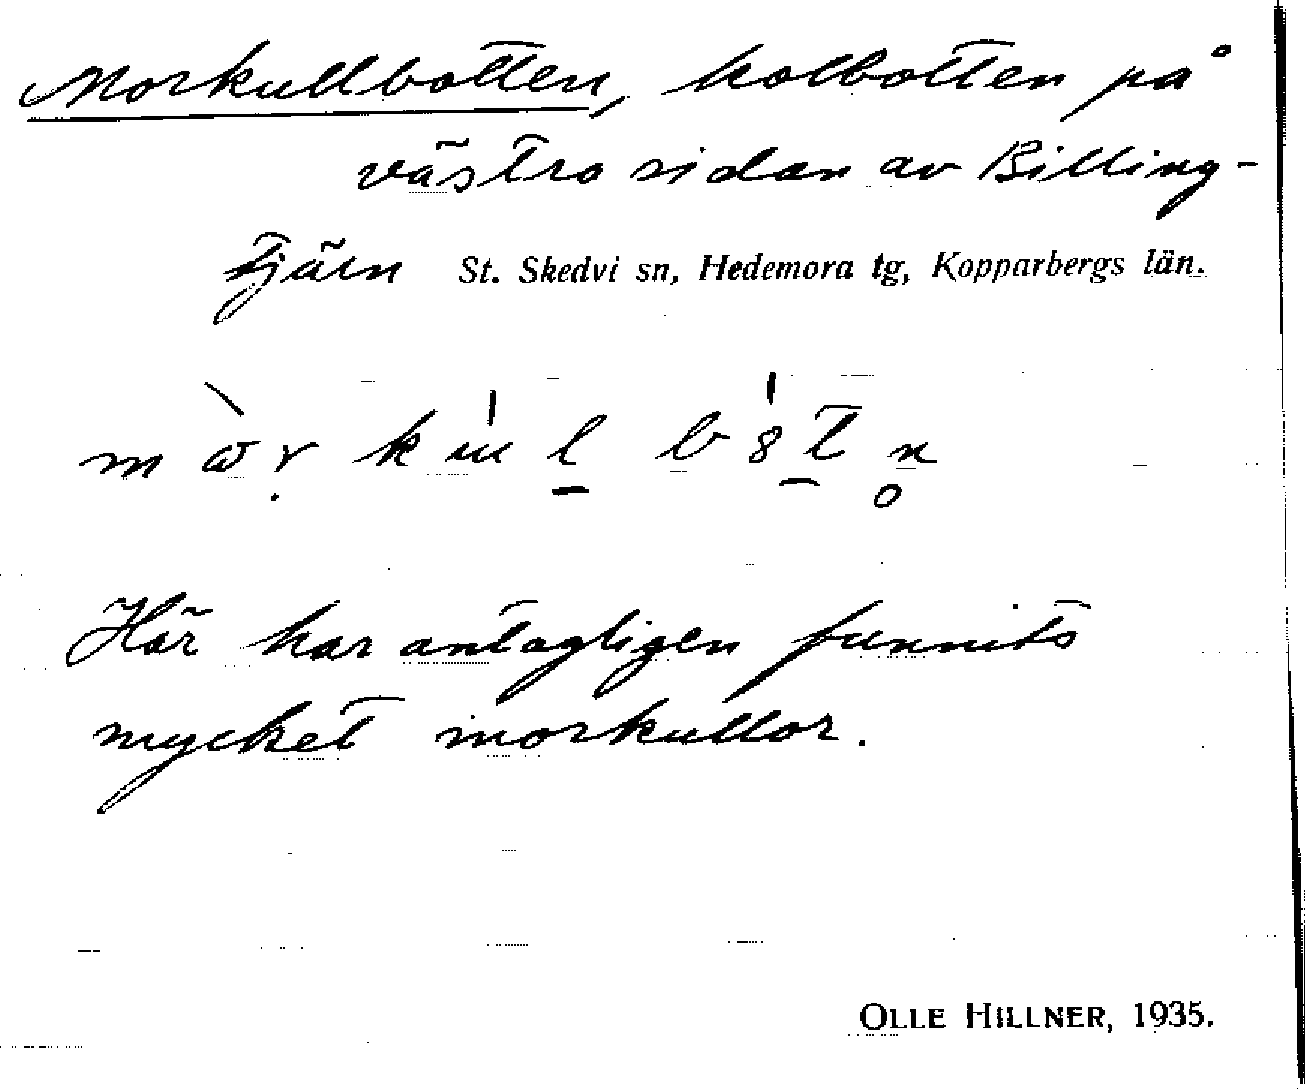 Morkullbotten, kolbotten på
västra sidan av Billing-
tjärn St. Skedvi sn, Hedemora tg, Kopparbergs län.
Här har antagligen funnits
mycket morkullor.
OLLE HILLNER, 1935.